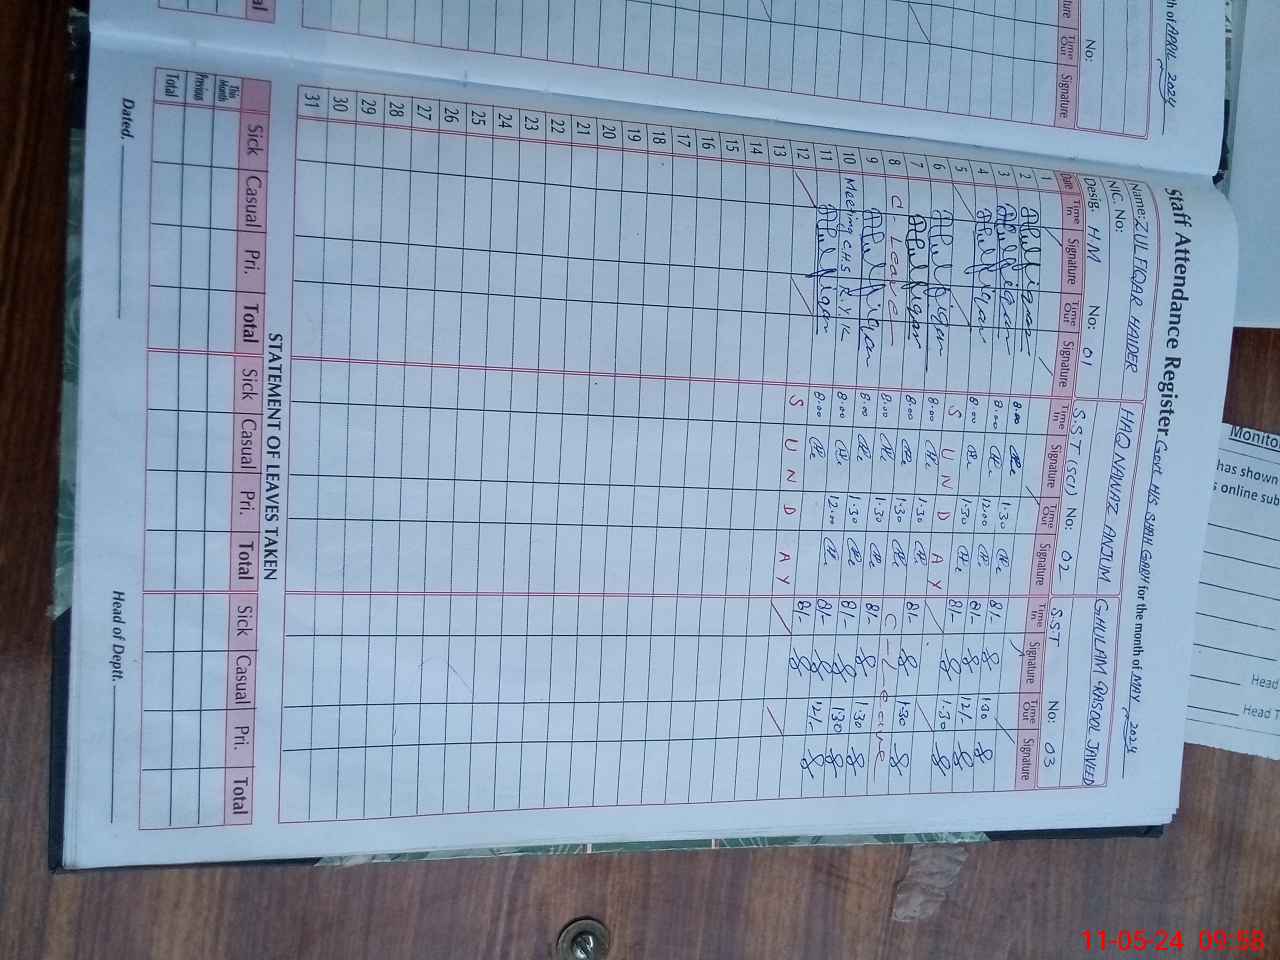 th of APRIL 2024
No:
ture Time Out Signature
al
Staff Attendance Register Govt. H/S SHAH GARH for the month of MAY 2024
Name: ZULFIQAR HAIDER HAQ NAWAZ ANJUM GHULAM RASOOL JAVEED
NIC. No:
Desig. H.M No: 01 S.S.T (SCI) No: 02 S.ST No: 03
Date Time In Signature Time Out Signature Time In Signature Time Out Signature Time In Signature Time Out Signature
1
2 Zulfiqar 8.00 1.30 8/- 1.30
3 Zulfiqar 8.00 12.00 8/- 12/-
4 Zulfiqar 8.00 1.30 8/- 1.30
5 S U N D A Y
6 Zulfiqar 8.00 1.30 8/- 1.30
7 Zulfiqar 8.00 1.30 C-Leave
8 C. Leave 8.00 1.30 8/- 1.30
9 Zulfiqar 8.00 1.30 8/- 1.30
10 Meeting C.H.S R.Y.K 8.00 12.00 8/- 12/-
11 Zulfiqar 8.00 8/-
12 S U N D A Y
13
14
15
16
17
18
19
20
21
22
23
24
25
26
27
28
29
30
31
STATEMENT OF LEAVES TAKEN
Sick Casual Pri. Total Sick Casual Pri. Total Sick Casual Pri. Total
This Month
Previous
Total
Dated. Head of Deptt.
Monito
has shown
s online sub
Head
Head T
11-05-24 09:58